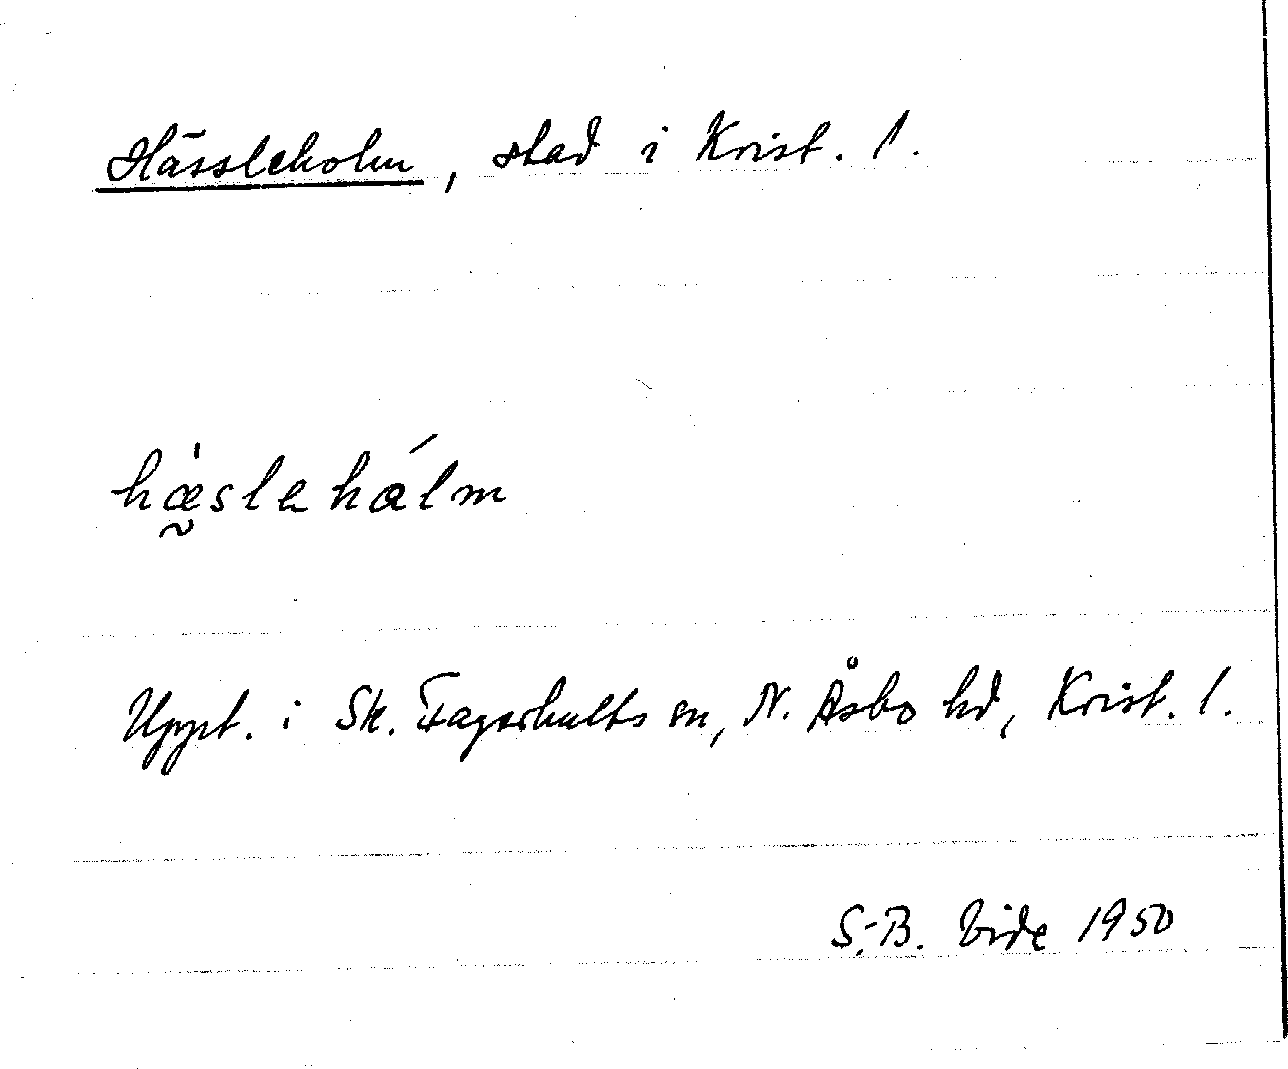 Hässleholm, stad i Krist. l.
hæ̰̀sləhálm
Uppt. i Sk. Fagerhults sn, N. Åsbo hd, Krist. l.
S.-B. Vide 1950